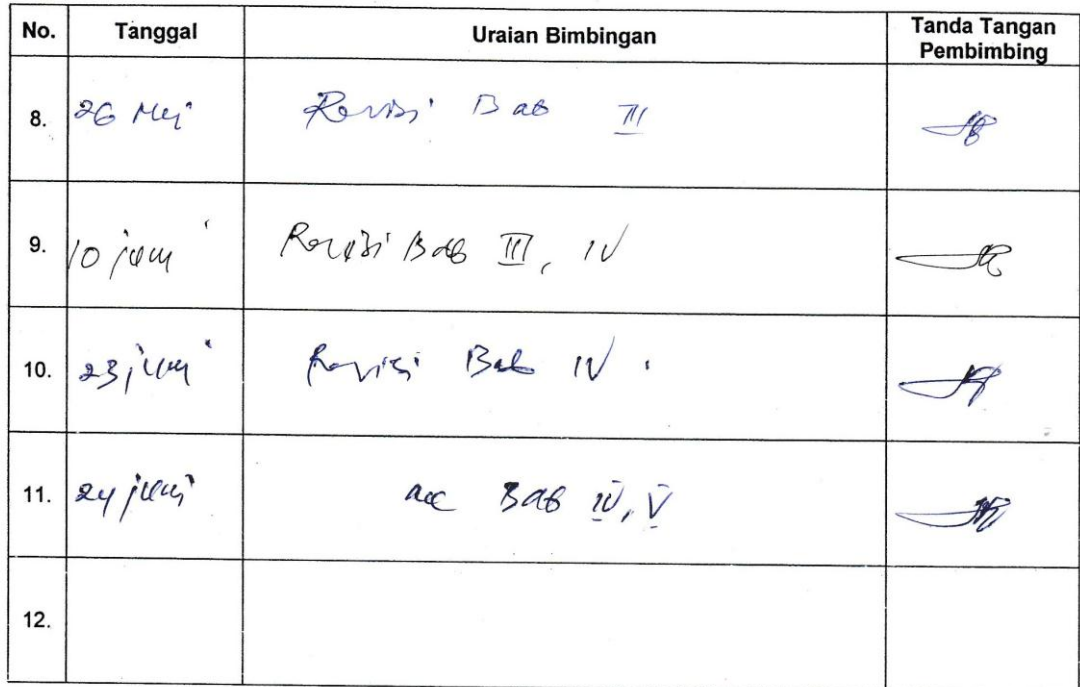 No. Tanggal Uraian Bimbingan Tanda Tangan
Pembimbing
8. 26 Mei Revisi Bab III
9. 10 juni Revisi Bab III, IV
10. 23 juni Revisi Bab IV.
11. 24 juni acc Bab IV, V
12.